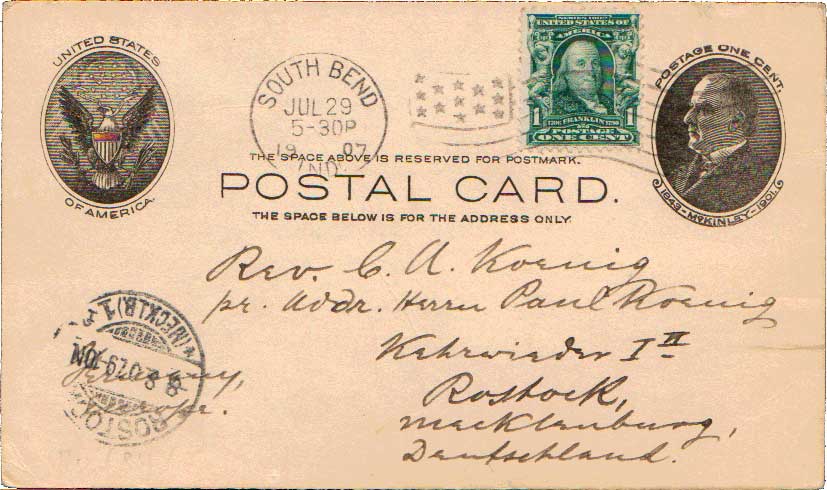 UNITED STATES
OF AMERICA.
SOUTH BEND
JUL 29
5-30P
19 07
IND.
SERIES 1902
UNITED STATES OF
AMERICA
1706 FRANKLIN 1790
1 POSTAGE 1
ONE CENT
POSTAGE ONE CENT.
1843-McKINLEY-1901.
THE SPACE ABOVE IS RESERVED FOR POSTMARK.
POSTAL CARD.
THE SPACE BELOW IS FOR THE ADDRESS ONLY.
Rev. C. A. Koenig
pr. Addr. Herrn Paul Koenig
Kehrwieder I II
Rostock,
Mecklenburg,
Deutschland.
Germany,
Europe.
ROSTOCK
(MECKLB) 1
8 8 07 9-10N